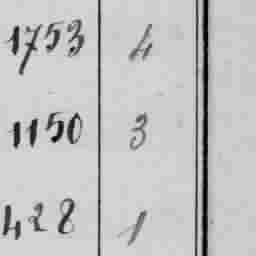 1753 4
1150 3
428 1